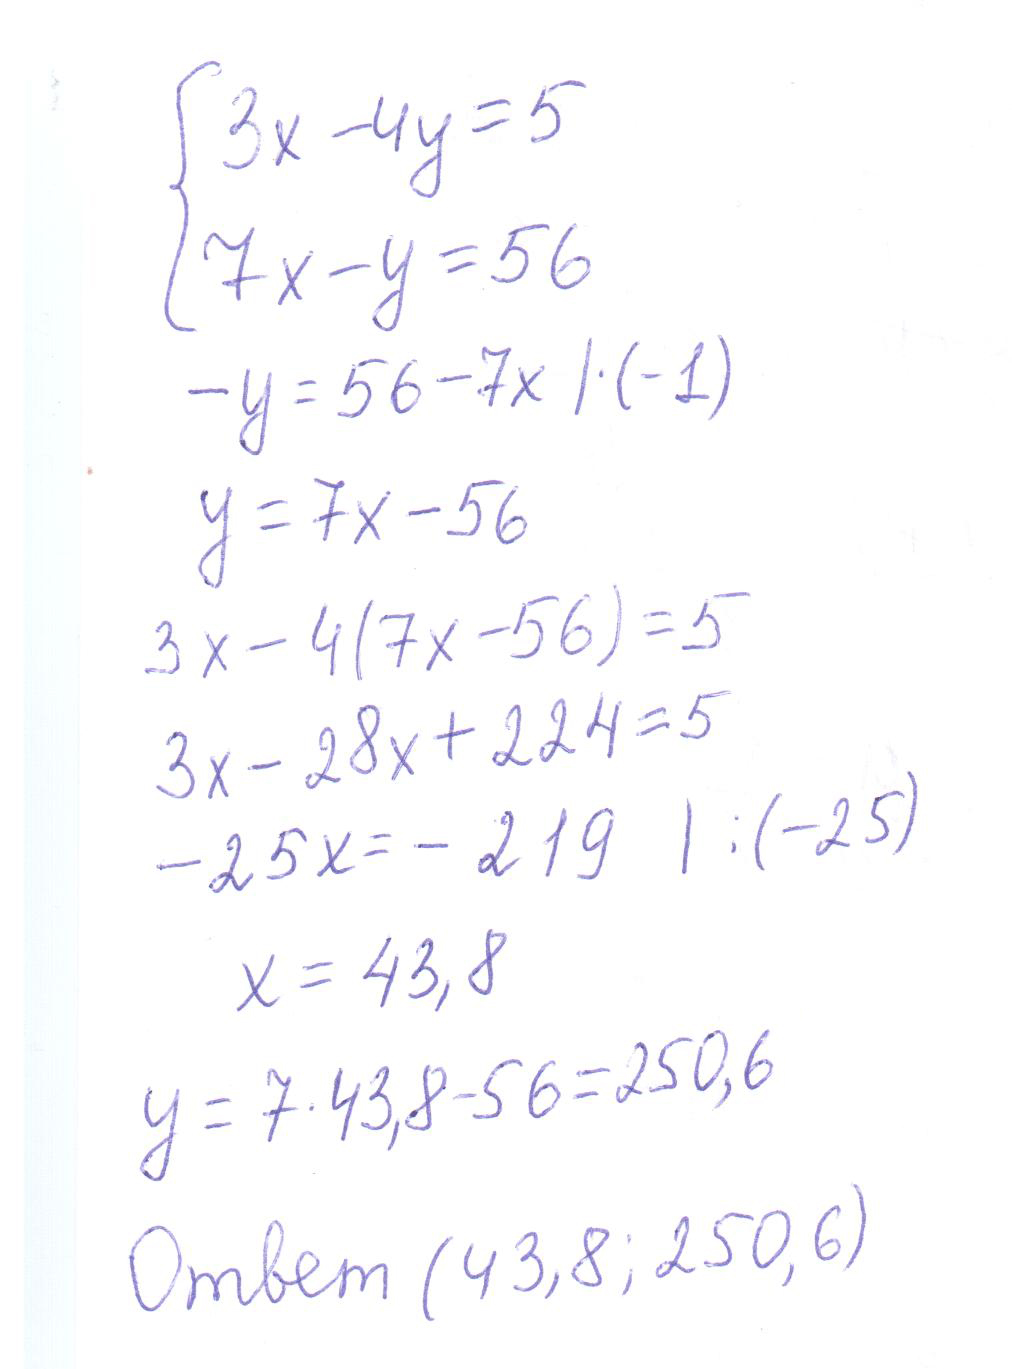 {3x-4y=5
7x-y=56
-y=56-7x |·(-1)
y=7x-56
3x-4(7x-56)=5
3x-28x+224=5
-25x=-219 | :(-25)
x=43,8
y=7·43,8-56=250,6
Ответ (43,8; 250,6)